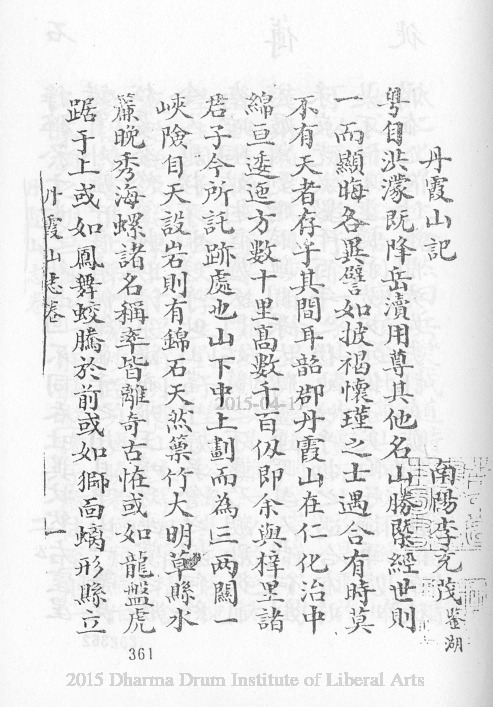 丹霞山記
南陽李充茂鑒湖
粵自洪濛既降岳瀆用尊其他名山勝槩經世則
一而顯晦各異譬如披褐懷瑾之士遇合有時莫
不有天者存乎其間耳韶郡丹霞山在仁化治中
綿亘逶迤方數十里高數千百仭即余與梓里諸
君子今所託跡處也山下中上劃而為三兩關一
峽險自天設岩則有錦石天然藥竹大明草縣水
簾晚秀海螺諸名稱率皆離奇古恠或如龍盤虎
踞于上或如鳳舞蛟騰於前或如獅面螭形縣立
丹霞山志卷
一
361
2015-04-17
2015 Dharma Drum Institute of Liberal Arts